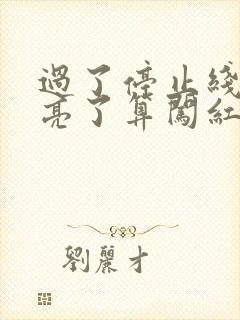 過了停止綫
亮了算闖紅
劉麗才